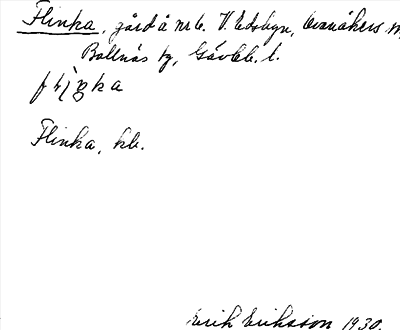 Flinka, gård å nr 6. V. Edsbyn, Ovanåkers sn
Bollnäs tg, Gävleb. l.
Flinka, kb.
Erik Eriksson 1930.